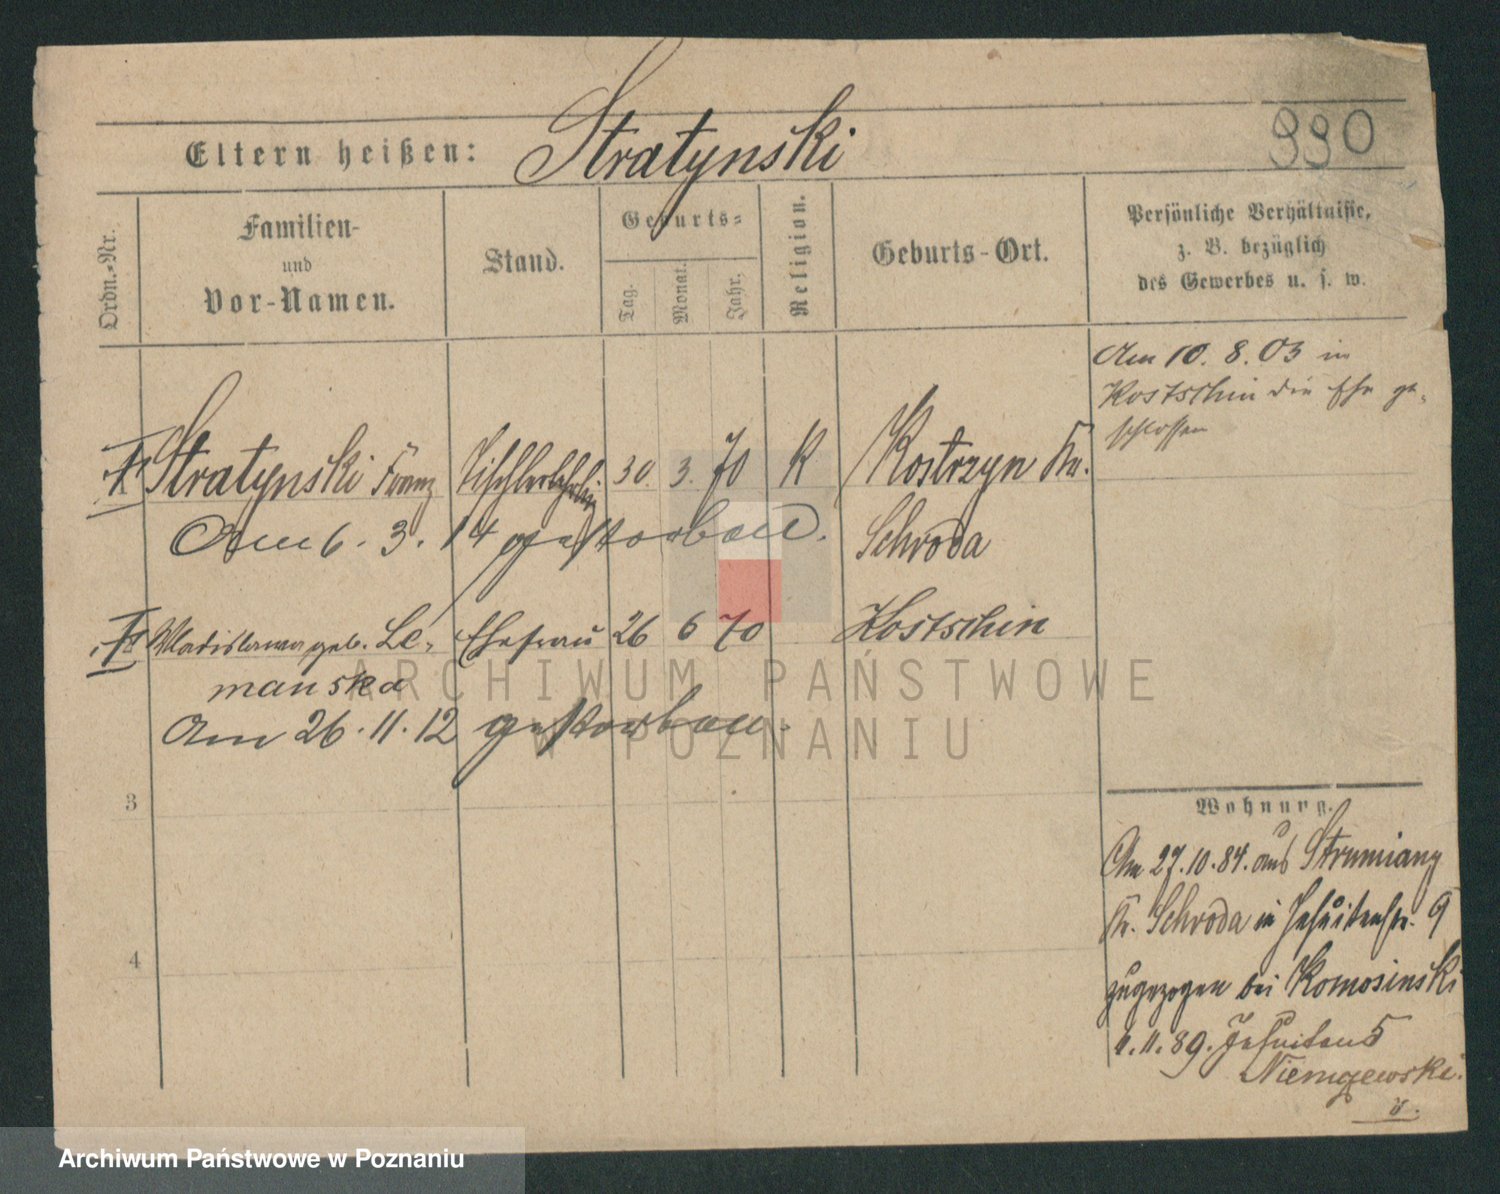 Eltern heißen: Stratynski
990
Ordn.-Nr.
Familien-
und
Vor-Namen.
Stand.
Geburts-
Tag.
Monat.
Jahr.
Religion.
Geburts-Ort.
Persönliche Verhältnisse,
z. B. bezüglich
des Gewerbes u. s. w.
Am 10. 8. 03 in
Kostschin die Ehe ge-
schlossen
Stratynski Franz Tischlerlehrling 30. 3. 70 K Kostrzyn Kr.
Schroda
Am 6. 3. 14 gestorben.
Wladislawa geb. Le- Ehefrau 26 6 70 Kostschin
manska
Am 26. 11. 12 gestorben.
3
4
Wohnung.
Am 27. 10. 84. aus Strumiany
Kr. Schroda in Jesuitenstr. 9
zugezogen bei Komosinski
11. 89. Jesuitens 5
ARCHIWUM PAŃSTWOWE
W POZNANIU
Archiwum Państwowe w Poznaniu